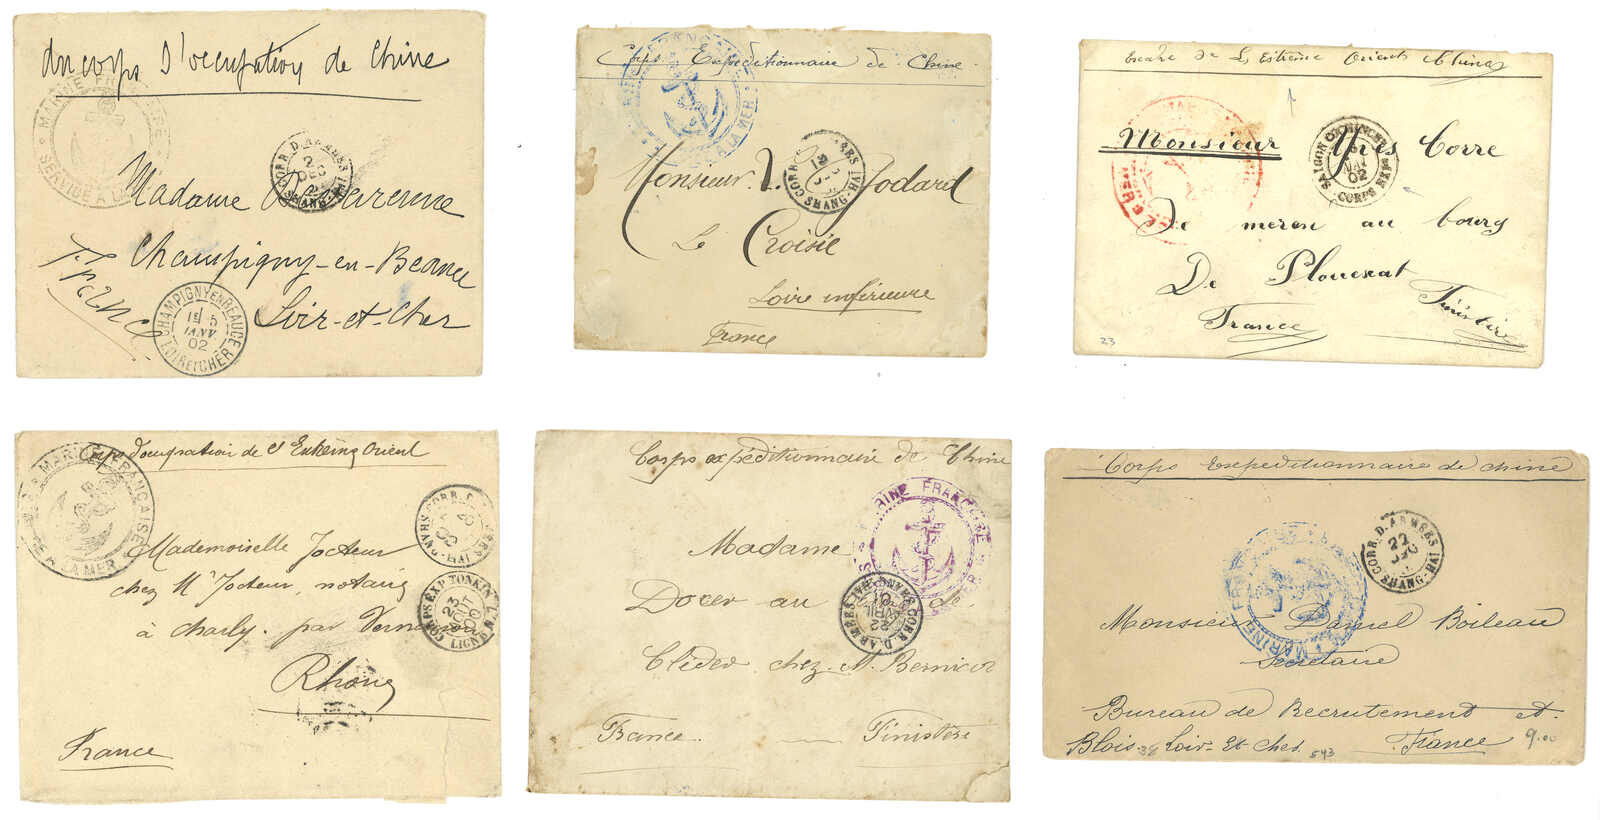 du corps d'occupation de Chine
MARINE FRANÇAISE
SERVICE À LA MER
CORR. D. ARMEES
2
DEC
SHANG-HAI
Madame
Champigny-en-Beauce
Loir-et-Cher
France
CHAMPIGNY EN BEAUCE
5
JANV
02
LOIR ET CHER
Corps Expéditionnaire de Chine
À LA MER
CORR. D. ARMEES
SHANG-HAI
Monsieur Jodard
Le Croisic
Loire inférieure
France
de L'Extrême Orient Chine
Monsieur Yves Corre
SAIGON
CORPS EXP
MAI
02
De meren au bourg
De Plouescat
Finistère
France
23
Corps d'occupation de l'Extrême Orient
MARINE FRANÇAISE
À LA MER
CORR. D. ARMEES
SHANG-HAI
Mademoiselle Jocteur
chez Mr Jocteur, notaire
à Charly, par Vernaison
CORPS EXP TONKIN
23
OCT
00
LIGNE N
Rhône
France
Corps expéditionnaire de Chine
MARINE FRANÇAISE
Madame
Docer au
CORR. D. ARMEES
SHANG-HAI
AVRIL
Cléder chez M. Bernicot
France Finistère
Corps Expéditionnaire de chine
CORR. D. ARMEES
22
SHANG-HAI
MARINE FRANÇAISE
Monsieur Daniel Boileau
Secrétaire
Bureau de Recrutement et.
Blois. Loir-Et-Cher. France
38
543
9.00